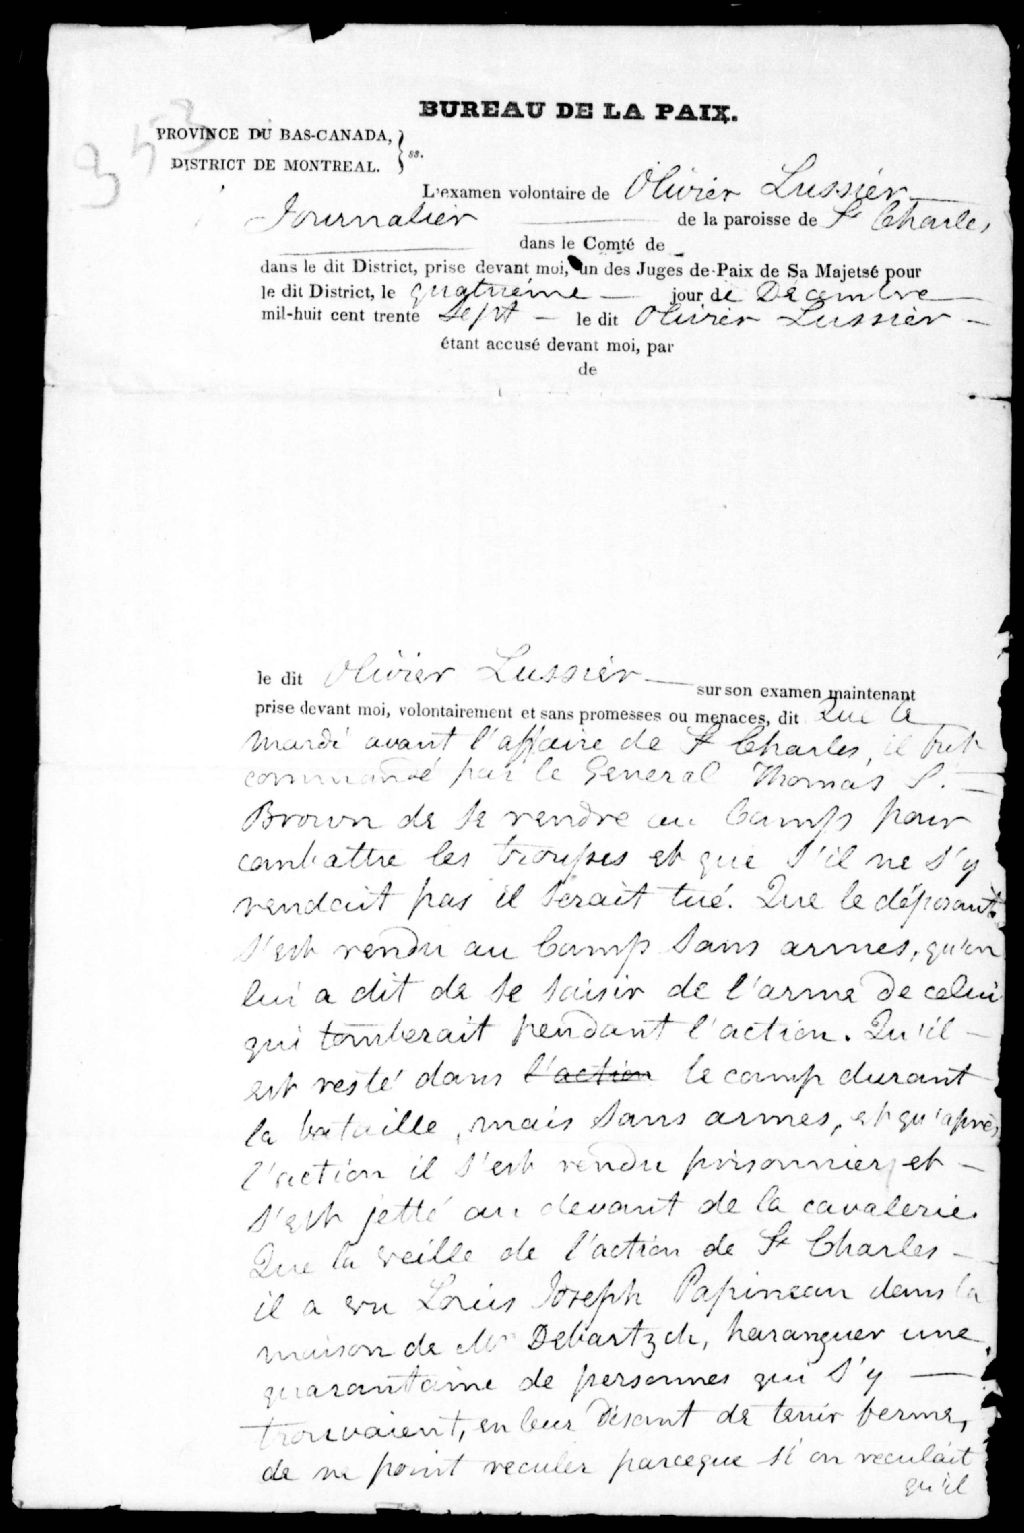 353
BUREAU DE LA PAIX.
PROVINCE DU BAS-CANADA,
DISTRICT DE MONTREAL. } ss.
L'examen volontaire de Olivier Lussiér
Journalier de la paroisse de St Charles,
dans le Comté de
dans le dit District, prise devant moi, un des Juges de-Paix de Sa Majetsé pour
le dit District, le quatriéme jour de Décembre
mil-huit cent trente Sept le dit Olivier Lussiér
étant accusé devant moi, par
de
le dit Olivier Lussiér sur son examen maintenant
prise devant moi, volontairement et sans promesses ou menaces, dit Que le
mardi avant l'affaire de St Charles, il fut
commandé par le General Thomas S.
Brown de se rendre au Camp pour
combattre les troupes et que s'il ne s'y
rendait pas il serait tué. Que le déposant
s'est rendu au Camp sans armes, qu'on
lui a dit de se saisir de l'arme de celui
qui tomberait pendant l'action. Qu'il
est resté dans l'action le camp durant
la bataille, mais sans armes, et qu'après
l'action il s'est rendu prisonnier, et
s'est jetté au devant de la cavalerie.
Que la veille de l'action de St Charles
il a vu Louis Joseph Papineau dans la
maison de Mr Debartzch, haranguer une
quarantaine de personnes qui s'y
trouvaient, en leur disant de tenir ferme,
de ne point reculer parceque si on reculait
qu'il